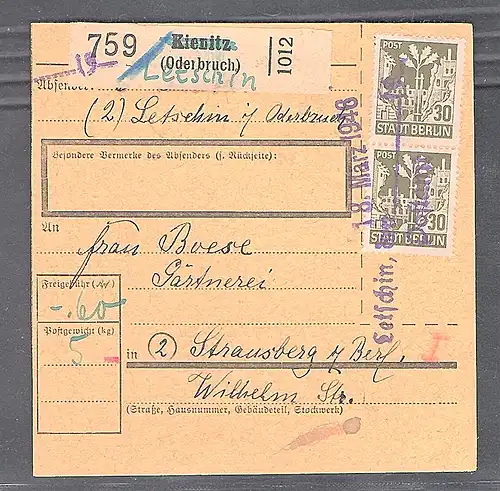 759
Kienitz
(Oderbruch)
1012
Letschin
Absender:
(2) Letschin i/ Oderbruch
Besondere Vermerke des Absenders (s. Rückseite):
An
Frau Boese
Gärtnerei
Freigebühr
-.60
Postgewicht (kg)
5
in (2) Strausberg b/ Berl.
Wilhelm Str.
(Straße, Hausnummer, Gebäudeteil, Stockwerk)
I
18. März 1946
Letschin,
POST
30
STADT BERLIN
POST
30
STADT BERLIN